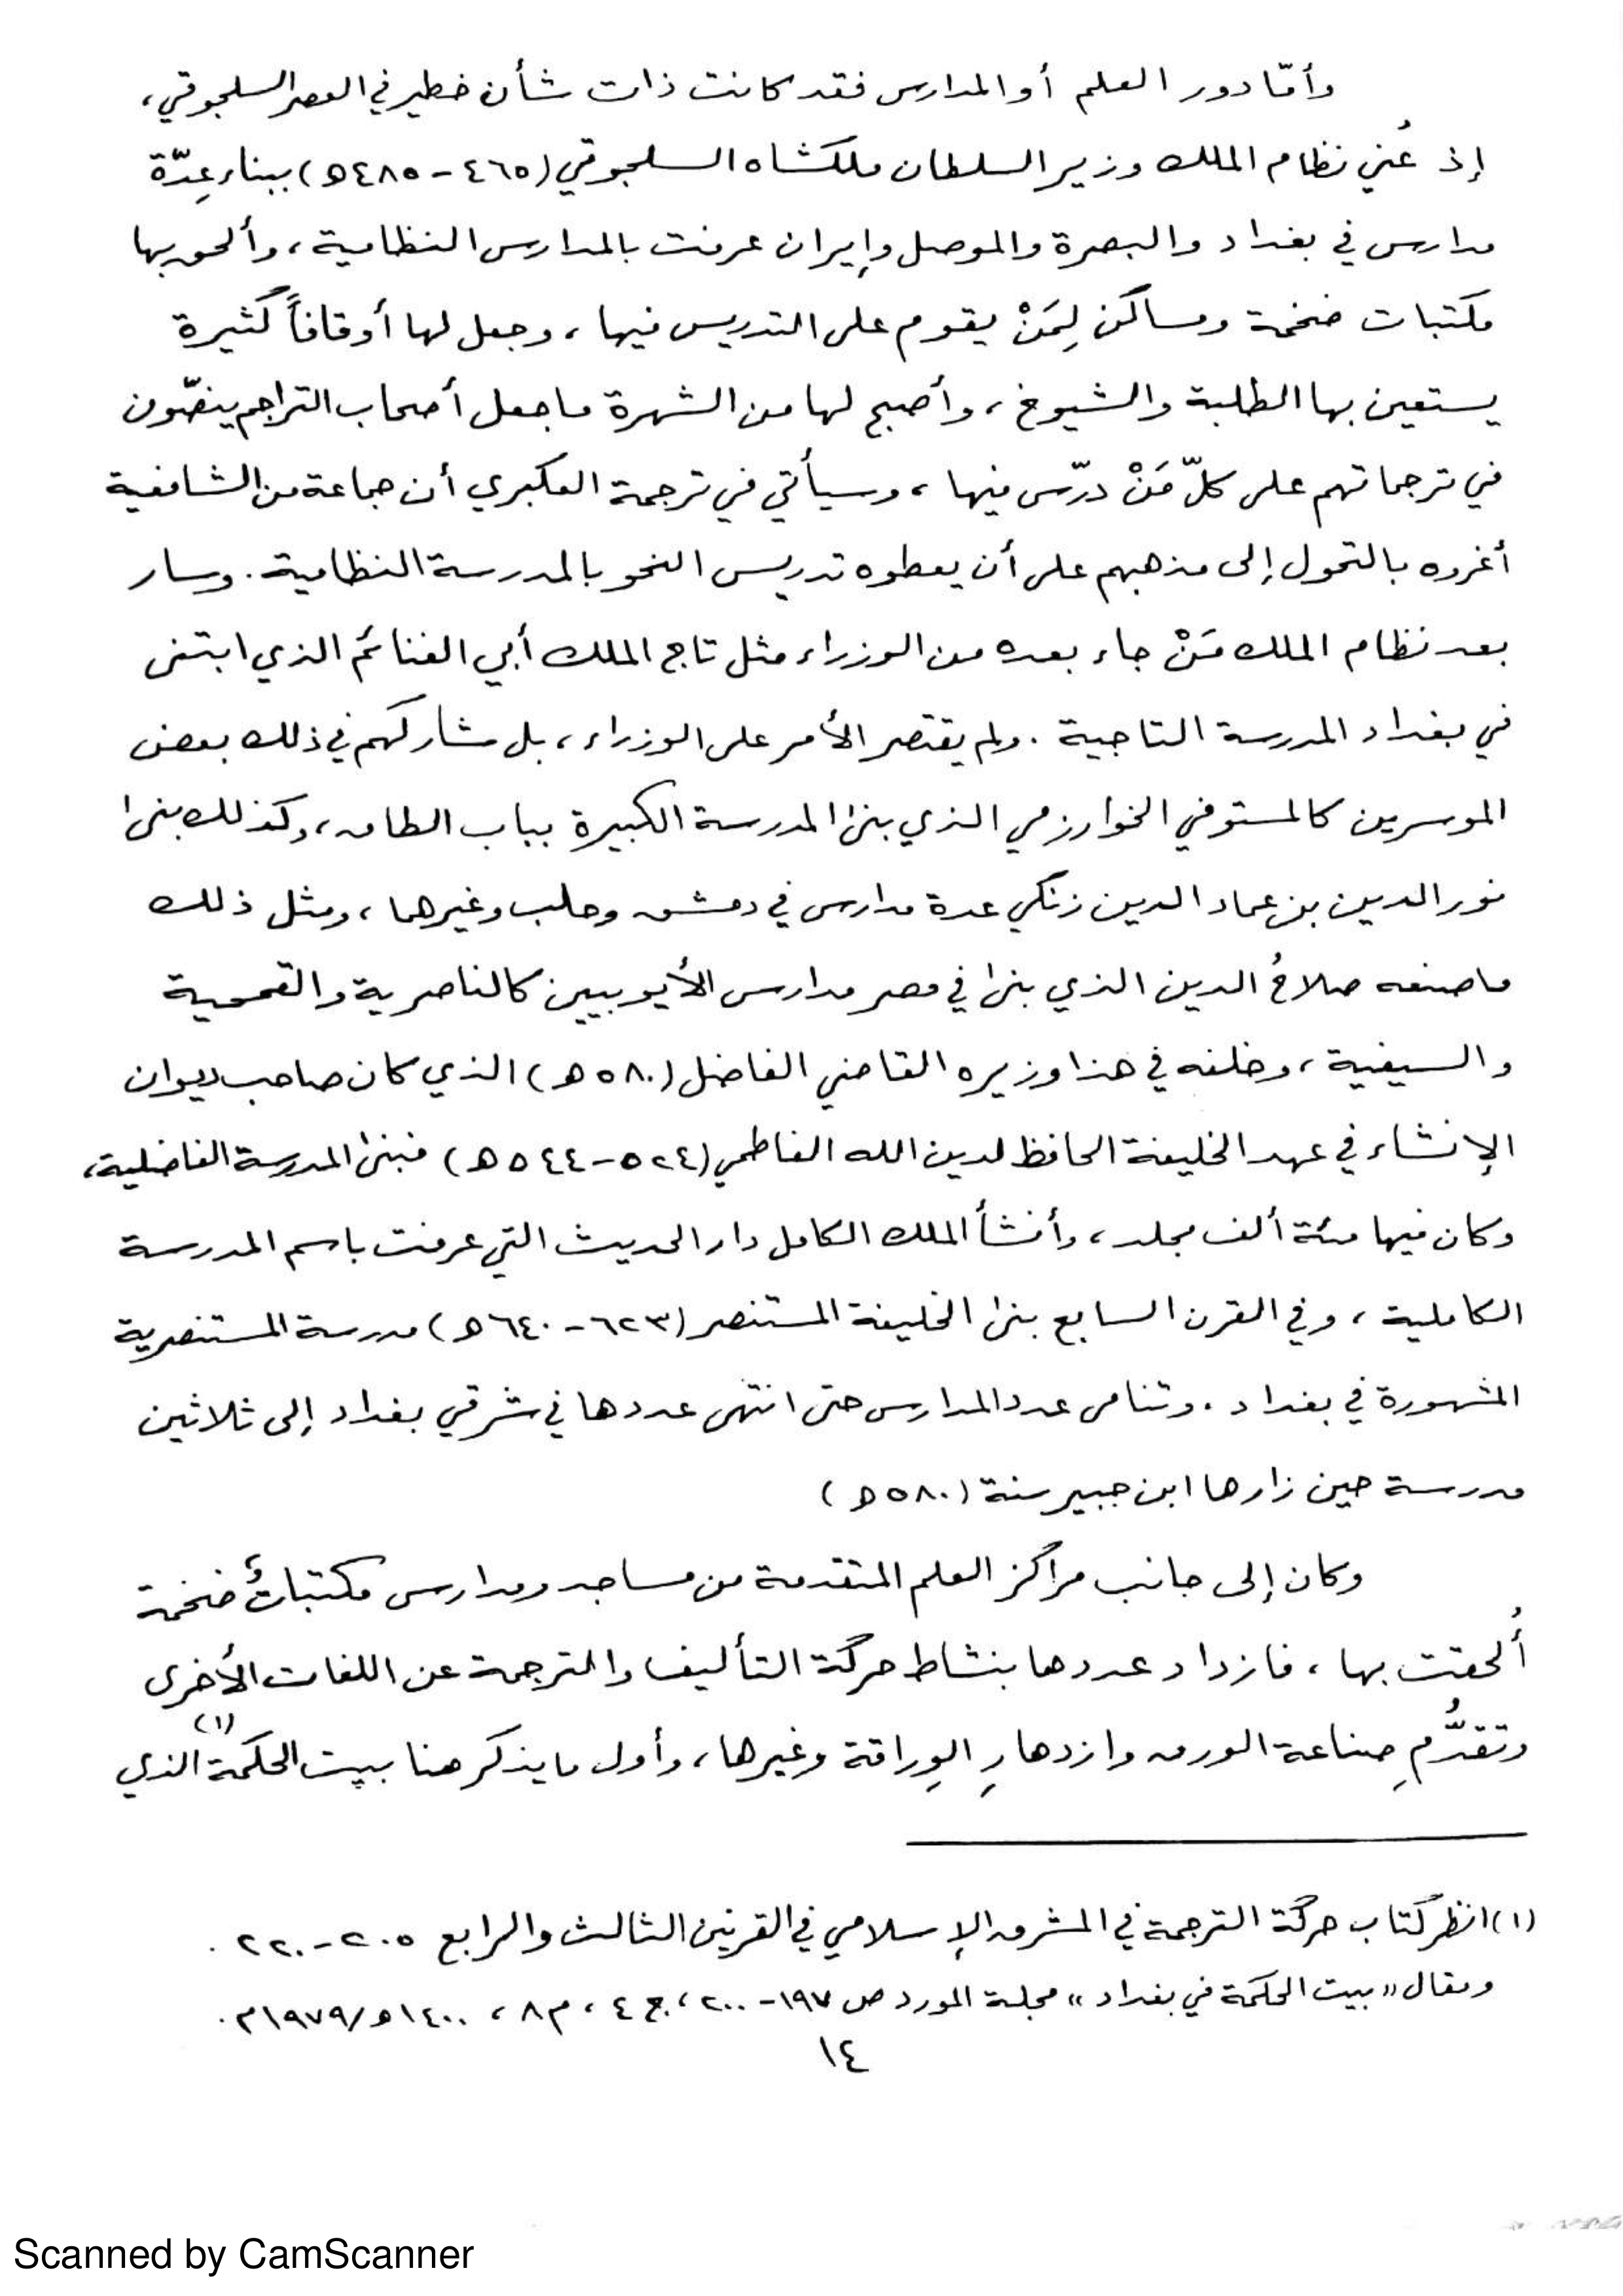 وأمّا دور العلم أو المدارس فقد كانت ذات شأن خطير في العصر السلجوقي،
إذ عُني نظام الملك وزير السلطان ملكشاه السلجوقي (٤٦٥-٤٨٥ه) ببناء عِدّة
مدارس في بغداد والبصرة والموصل وإيران عرفت بالمدارس النظامية، وألحق بها
مكتبات ضخمة ومساكن لِمَنْ يقوم على التدريس فيها، وجعل لها أوقافاً كثيرة
يستعين بها الطلبة والشيوخ، وأصبح لها من الشهرة ما جعل أصحاب التراجم ينصّون
في ترجماتهم على كلّ مَنْ درّس فيها، وسيأتي في ترجمة العكبري أن جماعة من الشافعية
أغروه بالتحول إلى مذهبهم على أن يعطوه تدريس النحو بالمدرسة النظامية. وسار
بعد نظام الملك مَنْ جاء بعده من الوزراء مثل تاج الملك أبي الغنائم الذي ابتنى
في بغداد المدرسة التاجية. ولم يقتصر الأمر على الوزراء، بل شاركهم في ذلك بعض
الموسرين كالمستوفي الخوارزمي الذي بنى المدرسة الكبيرة بباب الطاق، وكذلك بنى
نور الدين بن عماد الدين زنكي عدة مدارس في دمشق وحلب وغيرهما، ومثل ذلك
ما صنعه صلاحُ الدين الذي بنى في مصر مدارس الأيوبيين كالناصرية والقمحية
والسيفية، وخلفه في هذا وزيره القاضي الفاضل (٥٨٠ه) الذي كان صاحب ديوان
الإنشاء في عهد الخليفة الحافظ لدين الله الفاطمي (٥٢٤-٥٤٤ه) فبنى المدرسة الفاضلية،
وكان فيها مئة ألف مجلد، وأنشأ الملك الكامل دار الحديث التي عرفت باسم المدرسة
الكاملية، وفي القرن السابع بنى الخليفة المستنصر (٦٢٣-٦٤٠ه) مدرسة المستنصرية
المشهورة في بغداد. وتنامى عدد المدارس حتى انتهى عددها في شرقي بغداد إلى ثلاثين
مدرسة حين زارها ابن جبير سنة (٥٨٠ه)
وكان إلى جانب مراكز العلم المتقدمة من مساجد ومدارس مكتباتٌ ضخمة
أُلحقت بها، فازداد عددها بنشاط حركة التأليف والترجمة عن اللغات الأخرى
وتقدُّمِ صناعة الورق وازدهارِ الوِراقة وغيرها، وأول ما يذكر هنا بيت الحكمة(١) الذي
(١) انظر كتاب حركة الترجمة في المشرق الإسلامي في القرنين الثالث والرابع ٢٠٥-٢٢٠.
ومقال «بيت الحكمة في بغداد» مجلة المورد ص ١٩٧-٢٠٠، ج ٤، م ٨، ١٤٠٠ه/١٩٧٩م.
١٤
Scanned by CamScanner